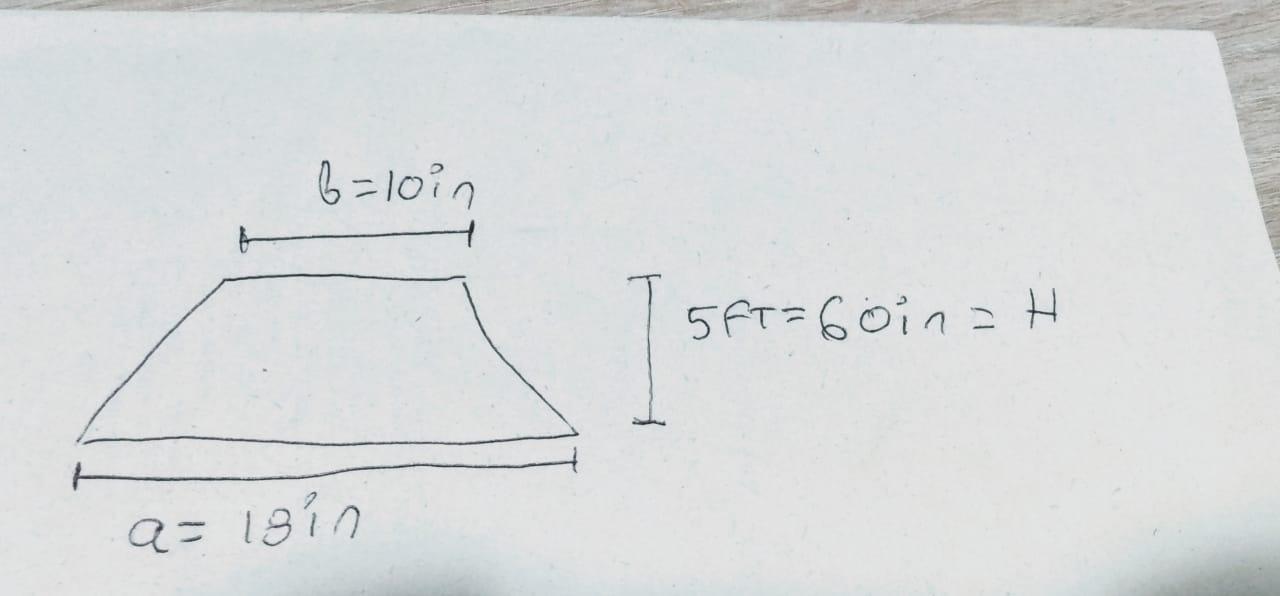 b=10in
5FT=60in=H
a=18in